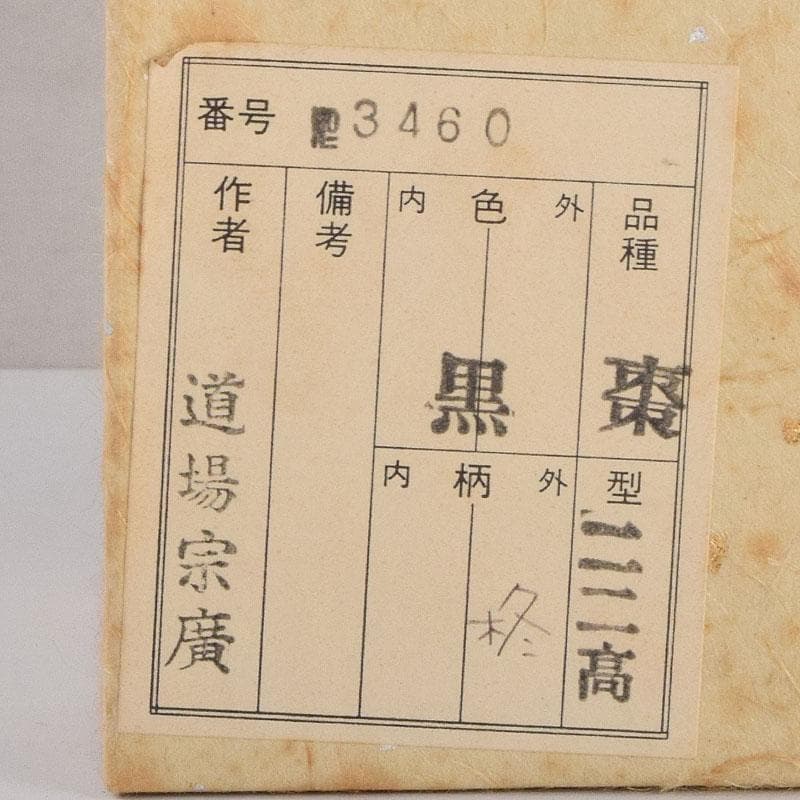 番号 3460
品種 棗
外 色 内
黒
型 髙
外 柄 内
柊
備考
作者 道場宗廣